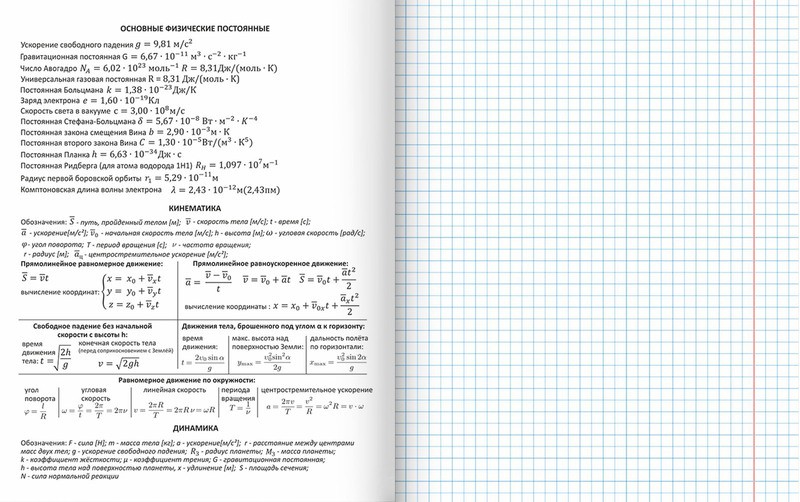 ОСНОВНЫЕ ФИЗИЧЕСКИЕ ПОСТОЯННЫЕ
Ускорение свободного падения g = 9,81 м/с²
Гравитационная постоянная G = 6,67 · 10⁻¹¹ м³ · с⁻² · кг⁻¹
Число Авогадро N_A = 6,02 · 10²³ моль⁻¹ R = 8,31Дж/(моль · К)
Универсальная газовая постоянная R = 8,31 Дж/(моль · К)
Постоянная Больцмана k = 1,38 · 10⁻²³Дж/К
Заряд электрона e = 1,60 · 10⁻¹⁹Кл
Скорость света в вакууме c = 3,00 · 10⁸м/с
Постоянная Стефана-Больцмана δ = 5,67 · 10⁻⁸ Вт · м⁻² · К⁻⁴
Постоянная закона смещения Вина b = 2,90 · 10⁻³м · К
Постоянная второго закона Вина C = 1,30 · 10⁻⁵Вт/(м³ · К⁵)
Постоянная Планка h = 6,63 · 10⁻³⁴Дж · с
Постоянная Ридберга (для атома водорода 1Н1) R_H = 1,097 · 10⁷м⁻¹
Радиус первой боровской орбиты r₁ = 5,29 · 10⁻¹¹м
Комптоновская длина волны электрона λ = 2,43 · 10⁻¹²м(2,43пм)
КИНЕМАТИКА
Обозначения: S̅ - путь, пройденный телом [м]; v̅ - скорость тела [м/с]; t - время [с];
a̅ - ускорение[м/с²]; v̅₀ - начальная скорость тела [м/с]; h - высота [м]; ω - угловая скорость [рад/с];
φ- угол поворота; T - период вращения [с]; ν - частота вращения;
r - радиус [м]; a̅ц - центростремительное ускорение [м/с²];
Прямолинейное равномерное движение:
S̅ = v̅t
вычисление координат: { x = x₀ + v̅ₓt
y = y₀ + v̅_y t
z = z₀ + v̅_z t
Прямолинейное равноускоренное движение:
a̅ = (v̅ − v̅₀)/t v̅ = v̅₀ + a̅t S̅ = v̅₀t + a̅t²/2
вычисление координаты : x = x₀ + v̅₀ₓt + a̅ₓt²/2
Свободное падение без начальной
скорости с высоты h:
время
движения
тела: t = √(2h/g)
конечная скорость тела
(перед соприкосновением с Землей)
v = √2gh
Движения тела, брошенного под углом α к горизонту:
время
движения:
t = 2v₀ sin α/g
макс. высота над
поверхностью Земли:
y_max = v₀² sin² α/2g
дальность полёта
по горизонтали:
x_max = v₀² sin 2α/g
Равномерное движение по окружности:
угол
поворота
φ = l/R
угловая
скорость
ω = φ/t = 2π/T = 2πν
линейная скорость
v = 2πR/T = 2πRν = ωR
периода
вращения
T = 1/ν
центростремительное ускорение
a = 2πv/T = v²/R = ω²R = v · ω
ДИНАМИКА
Обозначения: F - сила [Н]; m - масса тела [кг]; a - ускорение[м/с²]; r - расстояние между центрами
масс двух тел; g - ускорение свободного падения; R₃ - радиус планеты; M₃ - масса планеты;
k - коэффициент жёсткости; μ - коэффициент трения; G - гравитационная постоянная;
h - высота тела над поверхностью планеты, x - удлинение [м]; S - площадь сечения;
N - сила нормальной реакции